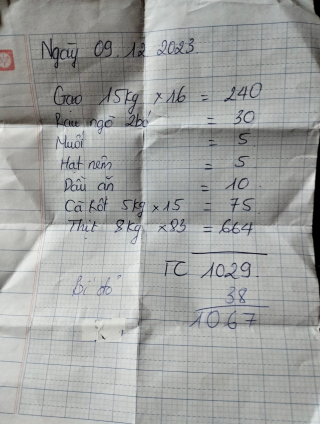 Ngày 09.12.2023.
Gạo 15kg × 16 = 240
Rau ngò 2bó = 30
Muối = 5
Hạt nêm = 5
Dầu ăn = 10.
Cà Rốt 5kg × 15 = 75
Thịt 8kg × 83 = 664
TC 1029.
bí đỏ 38
1067